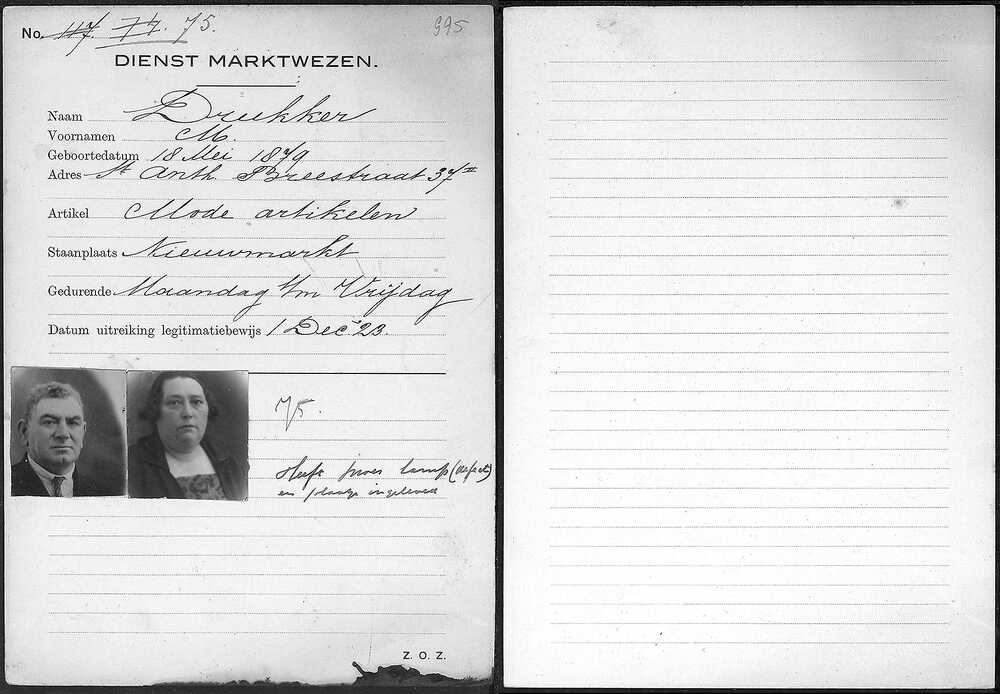 No. 117. 77. 75. 995
DIENST MARKTWEZEN.
Naam Drukker
Voornamen M.
Geboortedatum 18 Mei 1879
Adres St Anth. Breestraat 37 II
Artikel Mode artikelen
Staanplaats Nieuwmarkt
Gedurende Maandag t/m Vrijdag
Datum uitreiking legitimatiebewijs 1 Dec. 23.
75.
Heeft lamp (defect)
en plaatje ingeleverd
Z. O. Z.